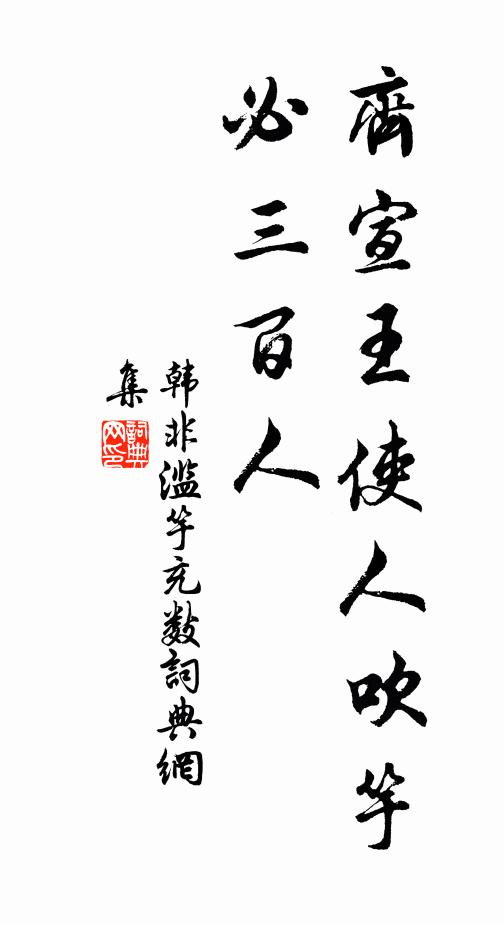 齊宣王使人吹竽
必三百人
韩非滥竽充数詞典網
集
詞典网印